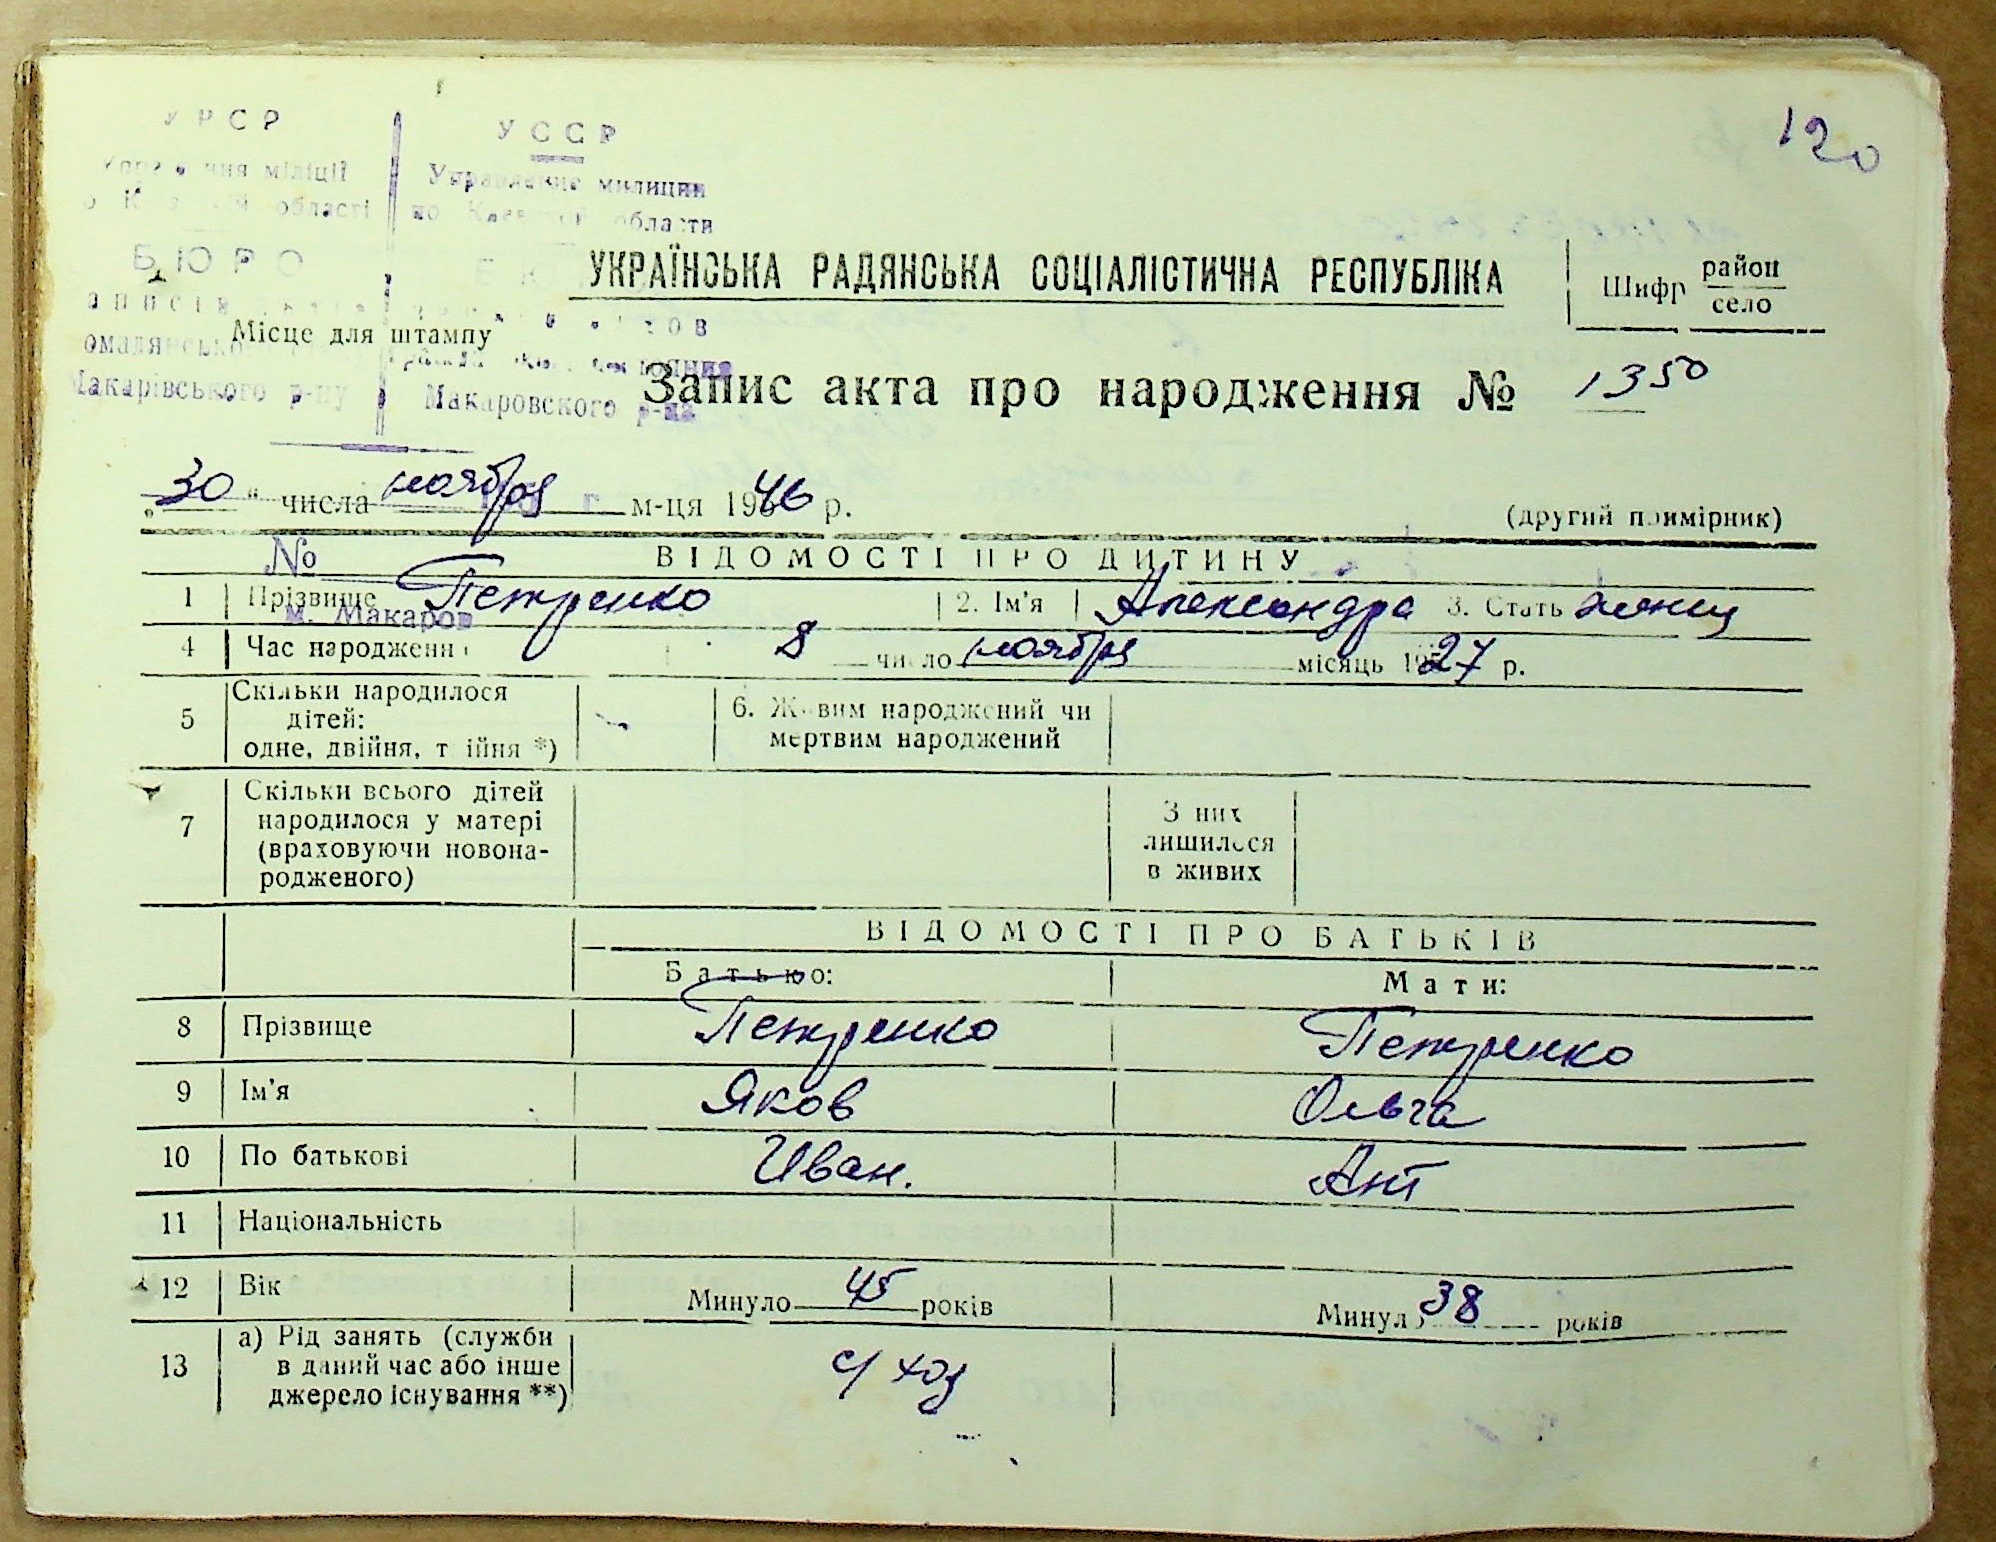 120
УРСР
УССР
міліції
Управление милиции
області
по Киевской области
БЮРО
УКРАЇНСЬКА РАДЯНСЬКА СОЦІАЛІСТИЧНА РЕСПУБЛІКА
Шифр район
село
Місце для штампу
Макарівського р-ну
Макаровского р-на
Запис акта про народження № 1350
„30“ числа ноября м-ця 1946 р.
(другий примірник)
№
ВІДОМОСТІ ПРО ДИТИНУ
1 Прізвище Петренко 2. Ім’я Александра 3. Стать женщ
м. Макаров
4 Час народження 8 число ноября місяць 1927 р.
5 Скільки народилося
дітей:
одне, двійня, трійня *) 
6. Живим народжений чи
мертвим народжений
7 Скільки всього дітей
народилося у матері
(враховуючи новона-
родженого)
З них
лишилося
в живих
ВІДОМОСТІ ПРО БАТЬКІВ
Батько: Мати:
8 Прізвище Петренко Петренко
9 Ім’я Яков Ольга
10 По батькові Иван. Ант
11 Національність
12 Вік Минуло 45 років Минуло 38 років
13 а) Рід занять (служби
в даний час або інше
джерело існування **) с/хоз